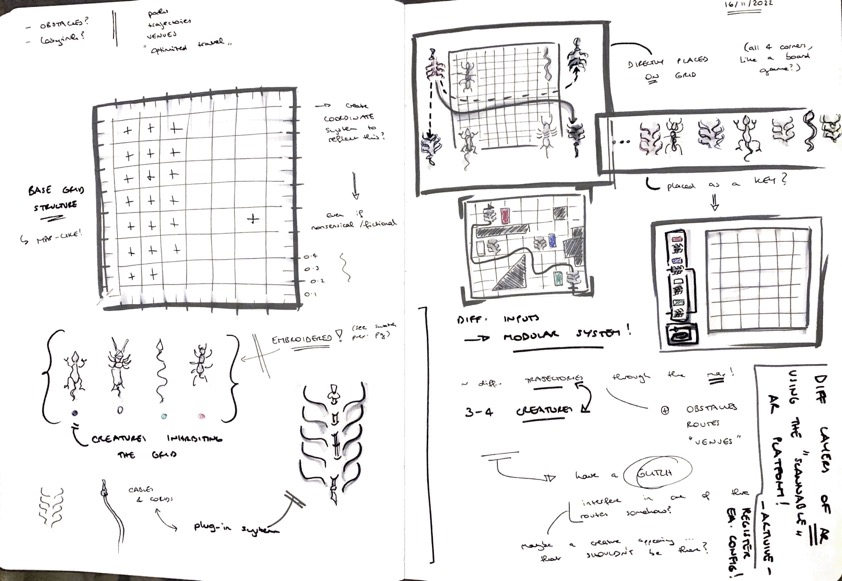 - OBSTACLES?
- Labyrinth?
paths
trajectories
VENUES
"optimized travel"
→ create
COORDINATE
system to
reflect this?
even if
nonsensical/fictional
0.4
0.3
0.2
0.1
BASE GRID
STRUCTURE
↳ MAP-LIKE!
EMBROIDERED!
(see
prev. pg)
CREATURES INHABITING
THE GRID
CABLES
& CORDS
plug-in system
16/11/2022
DIRECTLY PLACED
ON GRID
(all 4 corners,
like a board
game?)
...
placed as a KEY?
DIFF. INPUTS
→ MODULAR SYSTEM!
~ diff. TRAJECTORIES through the map!
3-4 CREATURES
⊕ OBSTACLES
ROUTES
"VENUES"
have a GLITCH
interfere in one of the
routes somehow?
maybe a creature appearing...
that SHOULDN'T be there?
DIFF LAYERS OF AR
USING THE "SCANNABLE"
AR PLATFORM!
REGISTER
EA. CONFIG!